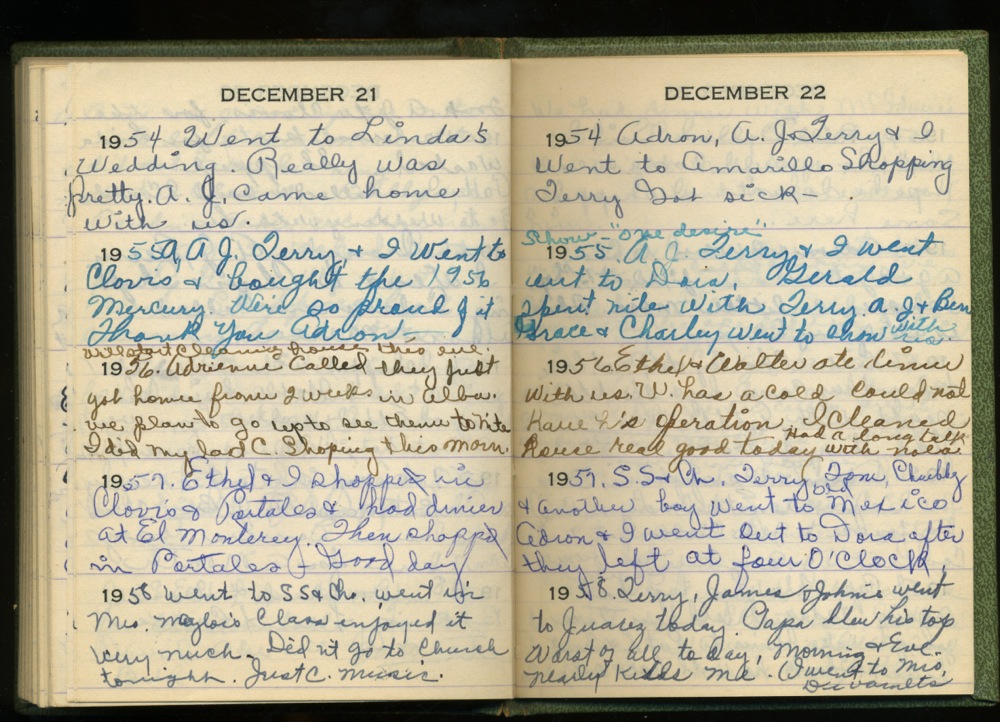 DECEMBER 21
1954 Went to Linda's
Wedding. Really was
pretty. A. J. came home
with us.
1955 A, A J, Terry, & I Went to
Clovis & bought the 1956
Mercury. We're so proud of it
Thank You Adron—
will start cleaning house this eve.
1956. Adrienne Called they just
got home from 2 weeks in Albu.
we plan to go up to see them tonite
I did my last C. Shoping this morn.
1957. Ethel & I shopped in
Clovis & Portales & had dinner
at El Monterey. Then shopped
in Portales - Good day
1958 went to SS & Ch. went in
Mrs. Class enjoyed it
very much. Did n't go to Church
tonight. Just C. music.
DECEMBER 22
1954 Adron, A. J. & Terry & I
Went to Amarillo Shopping
Terry Got sick—
Show - "One desire"
1955. A. J. Terry & I went
out to Dora. Gerald
spent nite with Terry. A. J & Ben
Grace & Charley went to show with
us
1956 Ethel & Walter ate dinner
with us. W. has a cold could not
have h's operation. I Cleaned
House real good today Had a long talk
with
1957. S.S & Ch. Terry, Tom, Chubby
& another boy went to Old Mexico
Adron & I went out to Dora after
they left at four O'Clock.
1958. Terry, James & Johnie went
to Juarez today. Papa blew his top
Worst of all to day, Morning & Eve.
nearly Kills me. I went to Mrs,